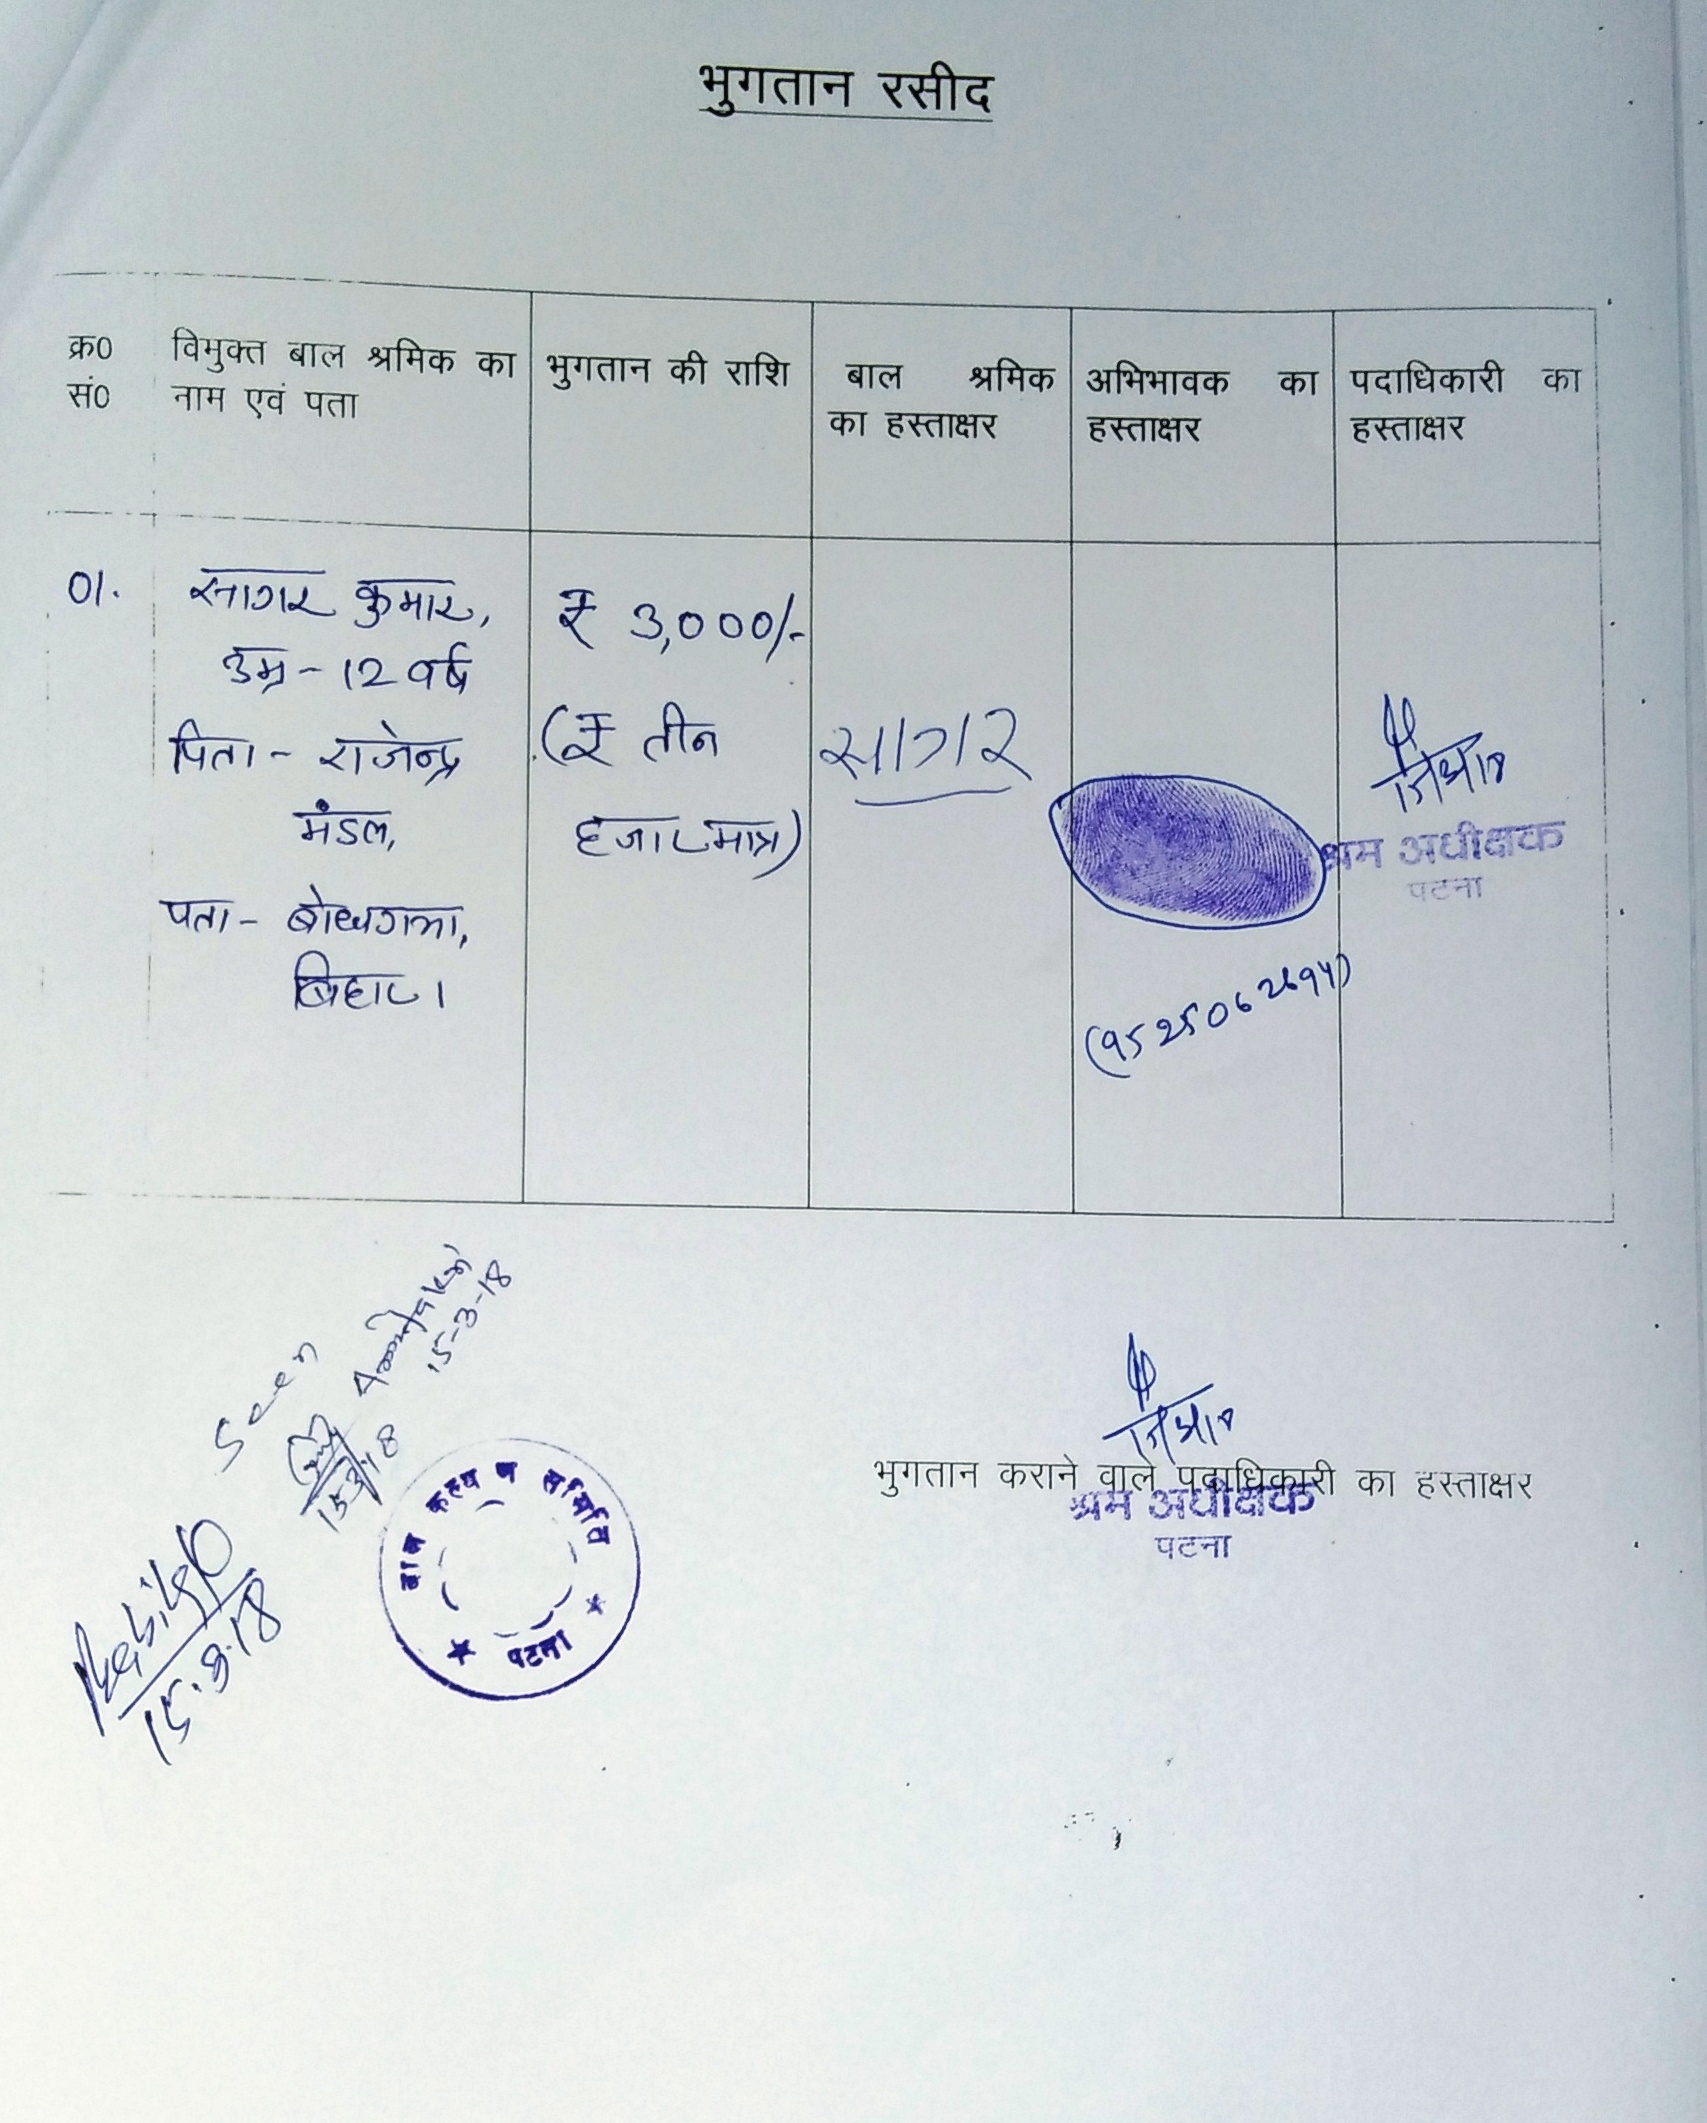 भुगतान रसीद
क्र0 सं0
विमुक्त बाल श्रमिक का
नाम एवं पता
भुगतान की राशि
बाल श्रमिक
का हस्ताक्षर
अभिभावक का
हस्ताक्षर
पदाधिकारी का
हस्ताक्षर
01.
सागर कुमार,
उम्र - 12 वर्ष
पिता - राजेन्द्र
मंडल,
पता - बोधगया,
बिहार।
₹ 3,000/-
(₹ तीन
हजार मात्र)
सागर
श्रम अधीक्षक
पटना
Seen
15-3-18
15.3.18
15.3.18
बाल कल्याण समिति
पटना
भुगतान कराने वाले पदाधिकारी का हस्ताक्षर
श्रम अधीक्षक
पटना